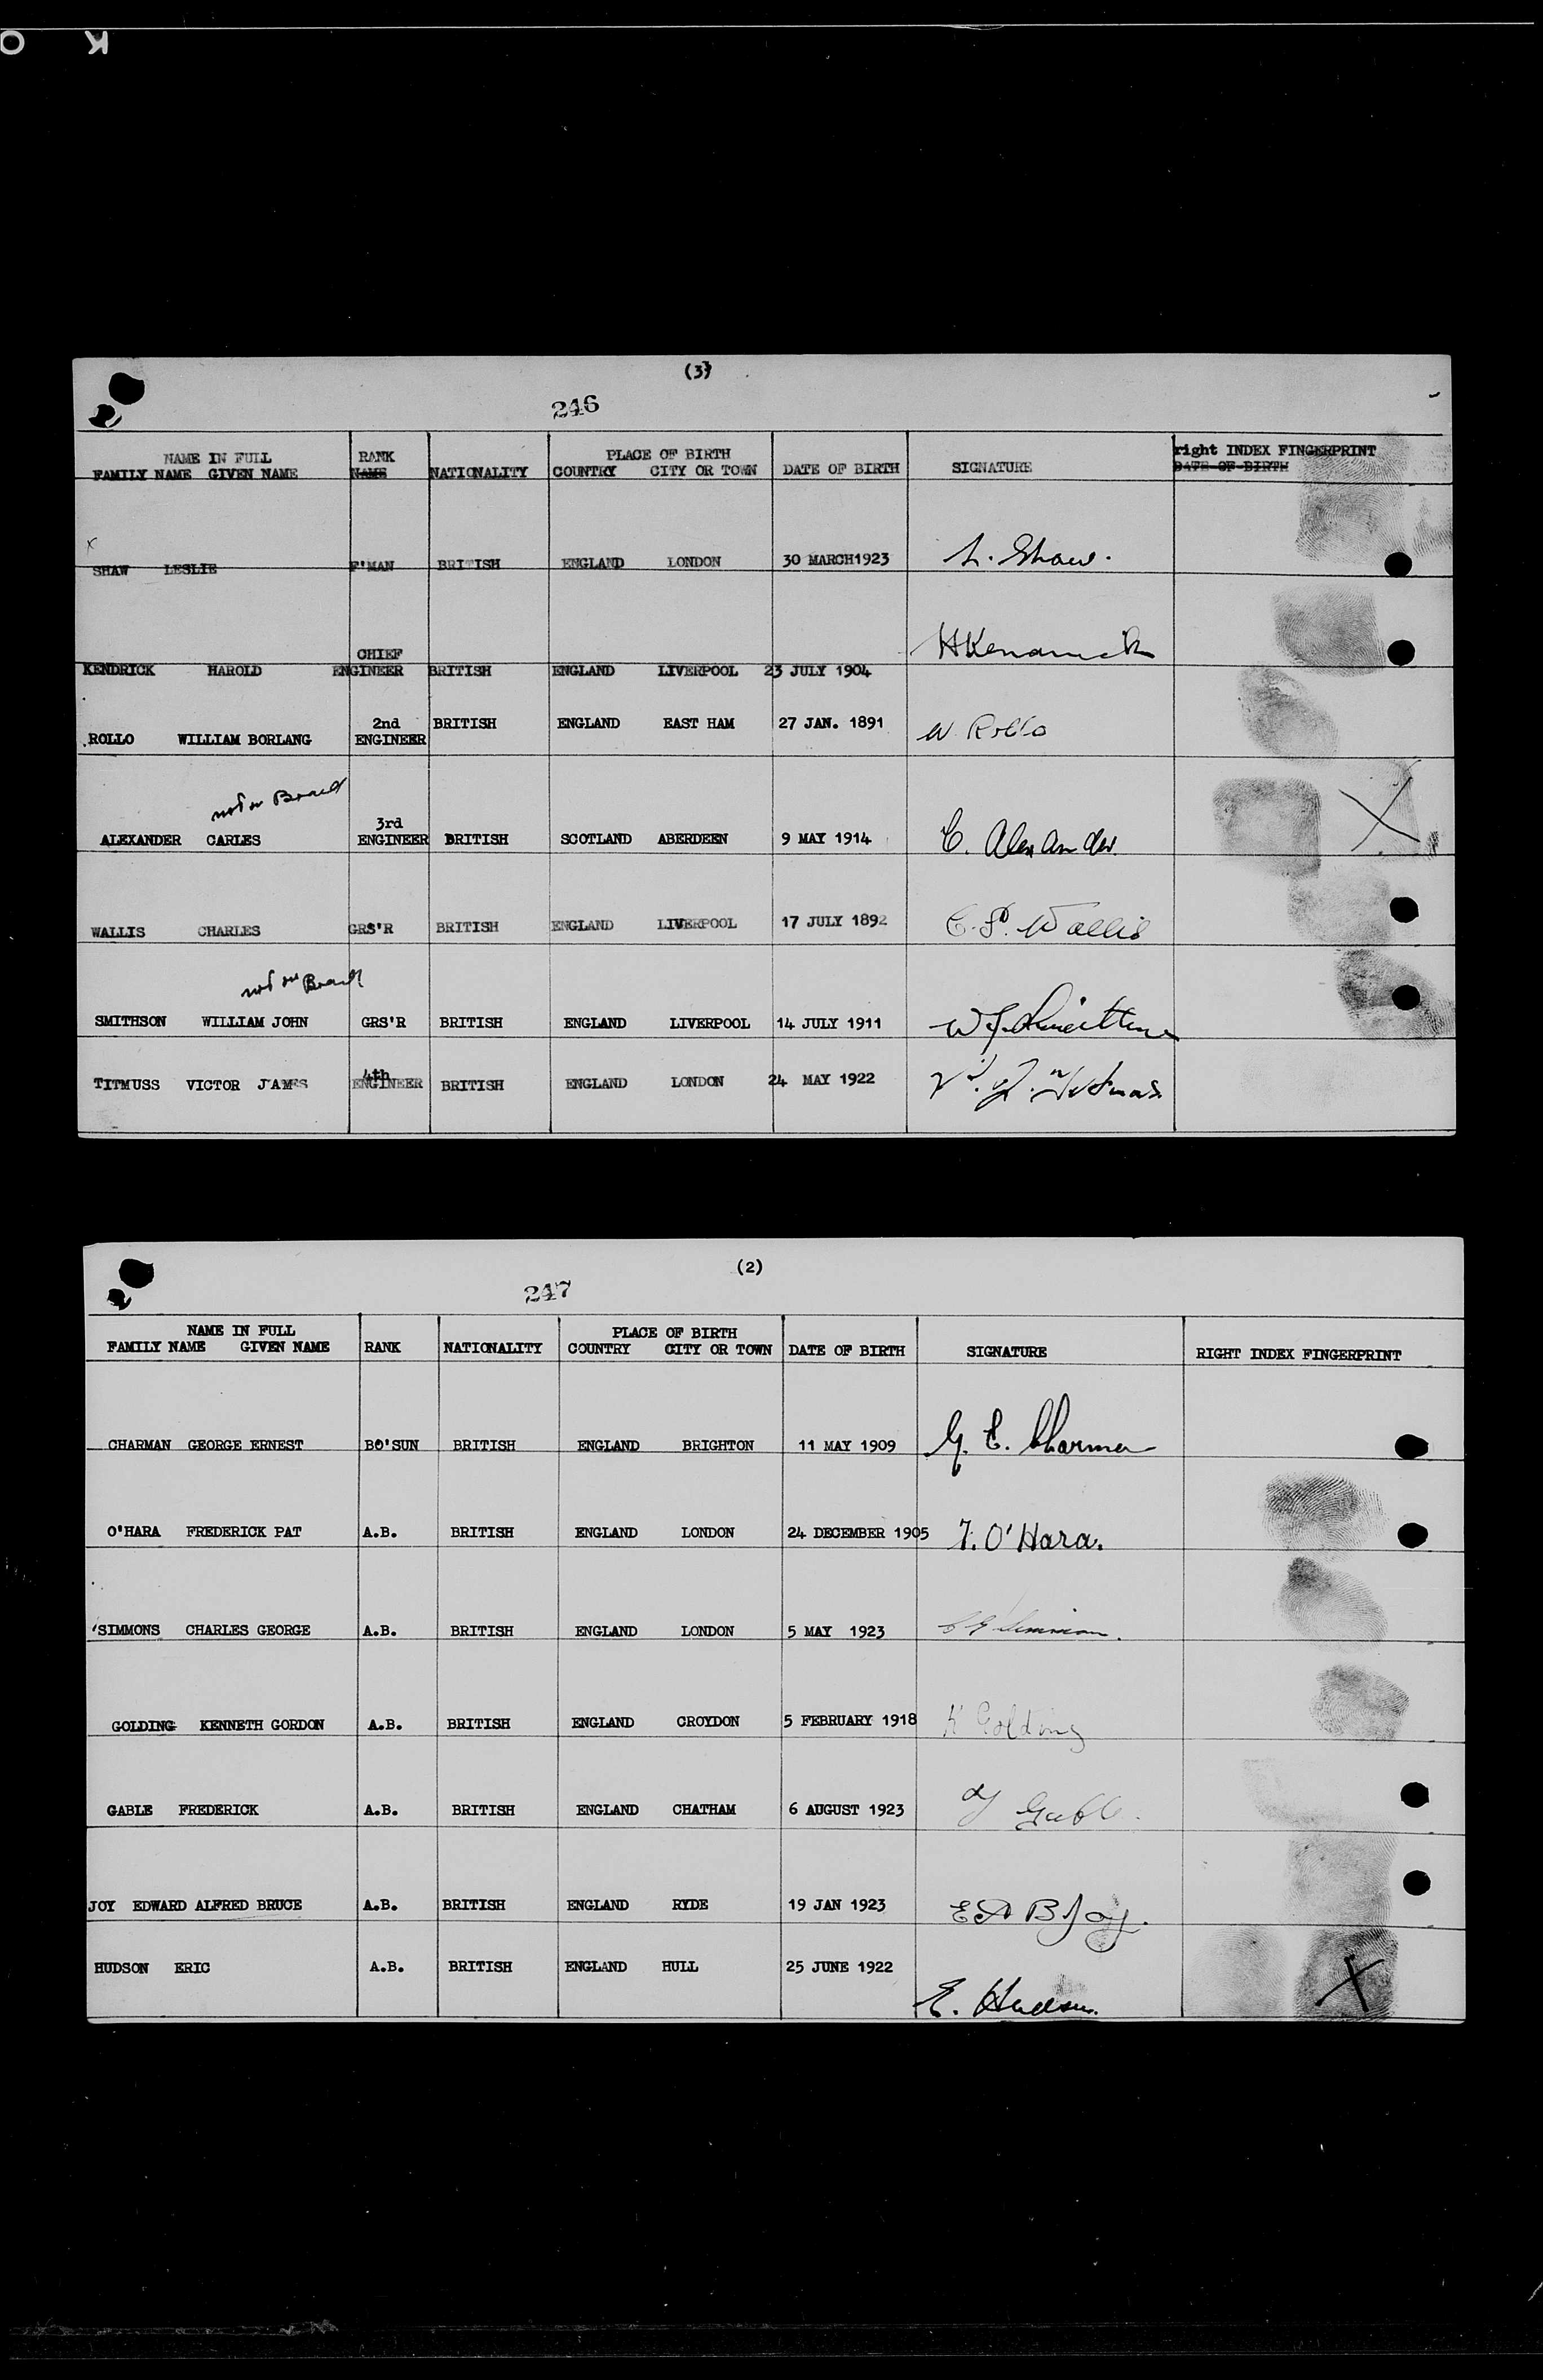 O K
(3)
246
NAME IN FULL RANK PLACE OF BIRTH right INDEX FINGERPRINT
FAMILY NAME GIVEN NAME NAME NATIONALITY COUNTRY CITY OR TOWN DATE OF BIRTH SIGNATURE DATE OF BIRTH
x
SHAW LESLIE F'MAN BRITISH ENGLAND LONDON 30 MARCH1923 L. Shaw.
CHIEF
KENDRICK HAROLD ENGINEER BRITISH ENGLAND LIVERPOOL 23 JULY 1904 H Kendrick
2nd BRITISH ENGLAND EAST HAM 27 JAN. 1891 W. Rollo
ROLLO WILLIAM BORLANG ENGINEER
not on Board
3rd
ALEXANDER CARLES ENGINEER BRITISH SCOTLAND ABERDEEN 9 MAY 1914 C. Alexander.
WALLIS CHARLES GRS'R BRITISH ENGLAND LIVERPOOL 17 JULY 1892 C. P. Wallis
not on Board
SMITHSON WILLIAM JOHN GRS'R BRITISH ENGLAND LIVERPOOL 14 JULY 1911 W J Smithson
4th
TITMUSS VICTOR JAMES ENGINEER BRITISH ENGLAND LONDON 24 MAY 1922 V. J. Titmuss
(2)
247
NAME IN FULL PLACE OF BIRTH
FAMILY NAME GIVEN NAME RANK NATIONALITY COUNTRY CITY OR TOWN DATE OF BIRTH SIGNATURE RIGHT INDEX FINGERPRINT
CHARMAN GEORGE ERNEST BO'SUN BRITISH ENGLAND BRIGHTON 11 MAY 1909 G. E. Charman
O'HARA FREDERICK PAT A.B. BRITISH ENGLAND LONDON 24 DECEMBER 1905 F. O'Hara.
SIMMONS CHARLES GEORGE A.B. BRITISH ENGLAND LONDON 5 MAY 1923 C G Simmons.
GOLDING KENNETH GORDON A.B. BRITISH ENGLAND CROYDON 5 FEBRUARY 1918 K Golding
GABLE FREDERICK A.B. BRITISH ENGLAND CHATHAM 6 AUGUST 1923 F Gable.
JOY EDWARD ALFRED BRUCE A.B. BRITISH ENGLAND RYDE 19 JAN 1923 E A B Joy.
HUDSON ERIC A.B. BRITISH ENGLAND HULL 25 JUNE 1922 E. Hudson.